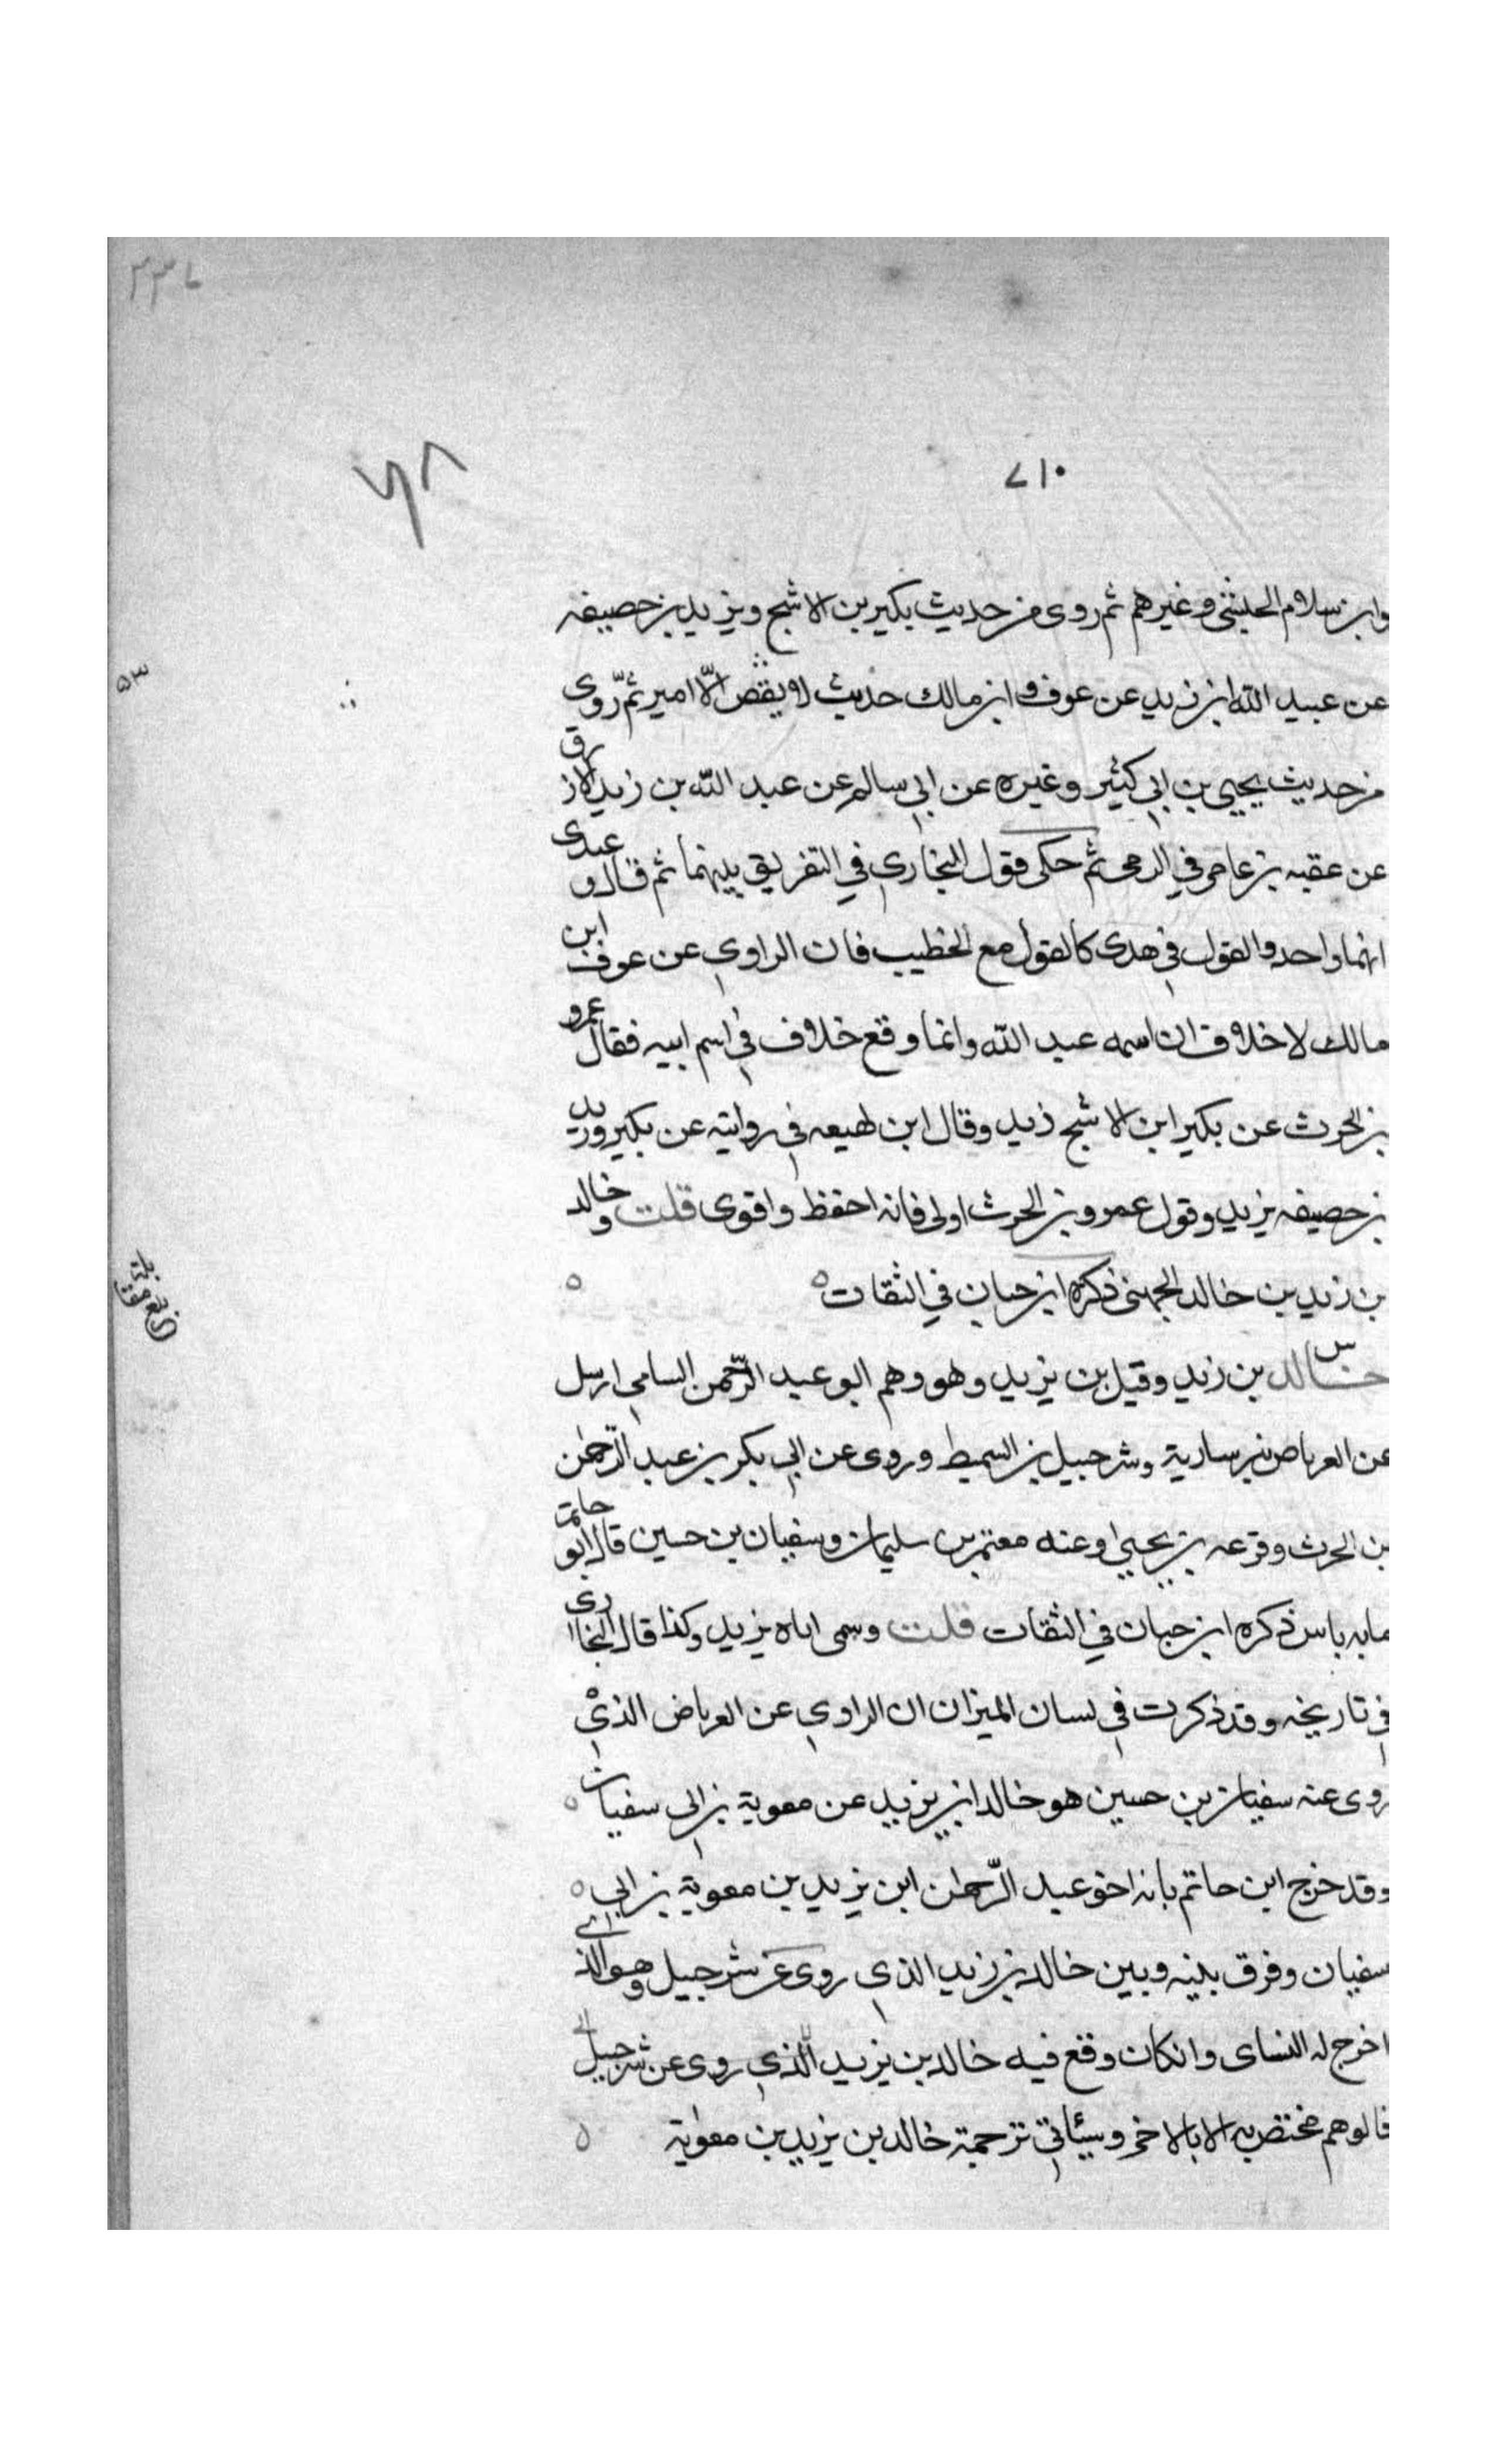 ٣٣٦
٧١٠
٦٨
وابن سلام الحبشى وغيرهم ثم روى من حديث بكير بن الاشج ويزيد بن حصيفه
٥٣
عن عبيد الله ابن زيد عن عوف ابن مالك حديث لا يقص الا امير ثم روى
من حديث يحيى بن ابى كثير وغيره عن ابى سالم عن عبد الله بن زيد الازرق
عن عقبه بن عامر في الرمى ثم حكى قول البخارى في التفريق بينهما ثم قال وعندى
انهما واحد والقول فى هدى كالقول مع الخطيب فان الراوى عن عوف ابن
مالك لا خلاف ان اسمه عبد الله وانما وقع خلاف فى اسم ابيه فقال عمرو
بن الحرث عن بكير ابن الاشج زيد وقال ابن لهيعه فى روايته عن بكير ويزيد
بن حصيفه يزيد وقول عمرو بن الحرث اولى فانه احفظ واقوى قلت وخالد
بن زيد بن خالد الجهنى ذكره ابن حبان في الثقات ٥ ٥
س
خالد بن زيد وقيل بن يزيد وهو وهم ابو عبد الرحمن السامى ارسل
عن العرباض بن سارية وشرحبيل بن السميط وروى عن ابى بكر بن عبد الرحمن
بن الحرث وقزعه بن يحيى وعنه معتمر بن سليمان وسفيان بن حسين قال ابو حاتم
مابه باس ذكره ابن حبان في الثقات قلت وسمى اباه يزيد وكذا قال البخارى
فى تاريخه وقد ذكرت فى لسان الميزان ان الراوى عن العرباض الذى
روى عنه سفيان بن حسين هو خالد ابن يزيد عن معوية بن ابى سفيان ٥
وقد خرج ابن حاتم بانه اخو عبد الرحمن ابن يزيد بن معوية بن ابى ٥
سفيان وفرق بينه وبين خالد بن زيد الذى روى عن شرحبيل وهو الذى
اخرج له النساى وانكان وقع فيه خالد بن يزيد الذى روى عن شرحبيل
فالوهم مختص به الا بالاخر وسيئاتى ترجمة خالد بن يزيد بن معوية ٥